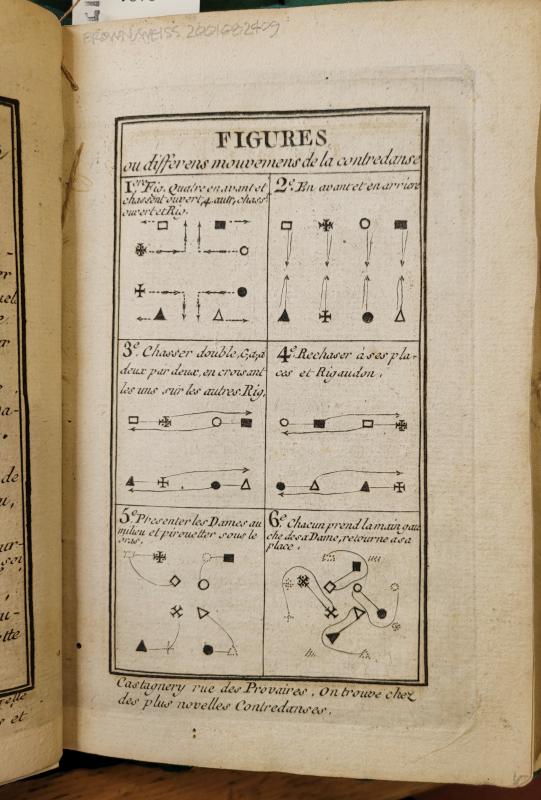 BROWN/WEISS 2001682409
FIGURES
ou differens mouvemens de la contredanse
1ere Fig. Quatre en avant et
chassent ouvert, 4 autr, chass
ouvert et Rig.
2e En avant et en arriere
3e. Chasser double, c, a, a
deux par deux, en croisant
les uns sur les autres. Rig,
4e. Rechaser à ses pla-
ces et Rigaudon.
5e Presenter les Dames au
milieu et pirouetter sous le
bras.
6e. Chacun prend la main gau
che de sa Dame, retourne a sa
place.
Castagnery rue des Provaires, On trouve chez
des plus novelles Contredanses.